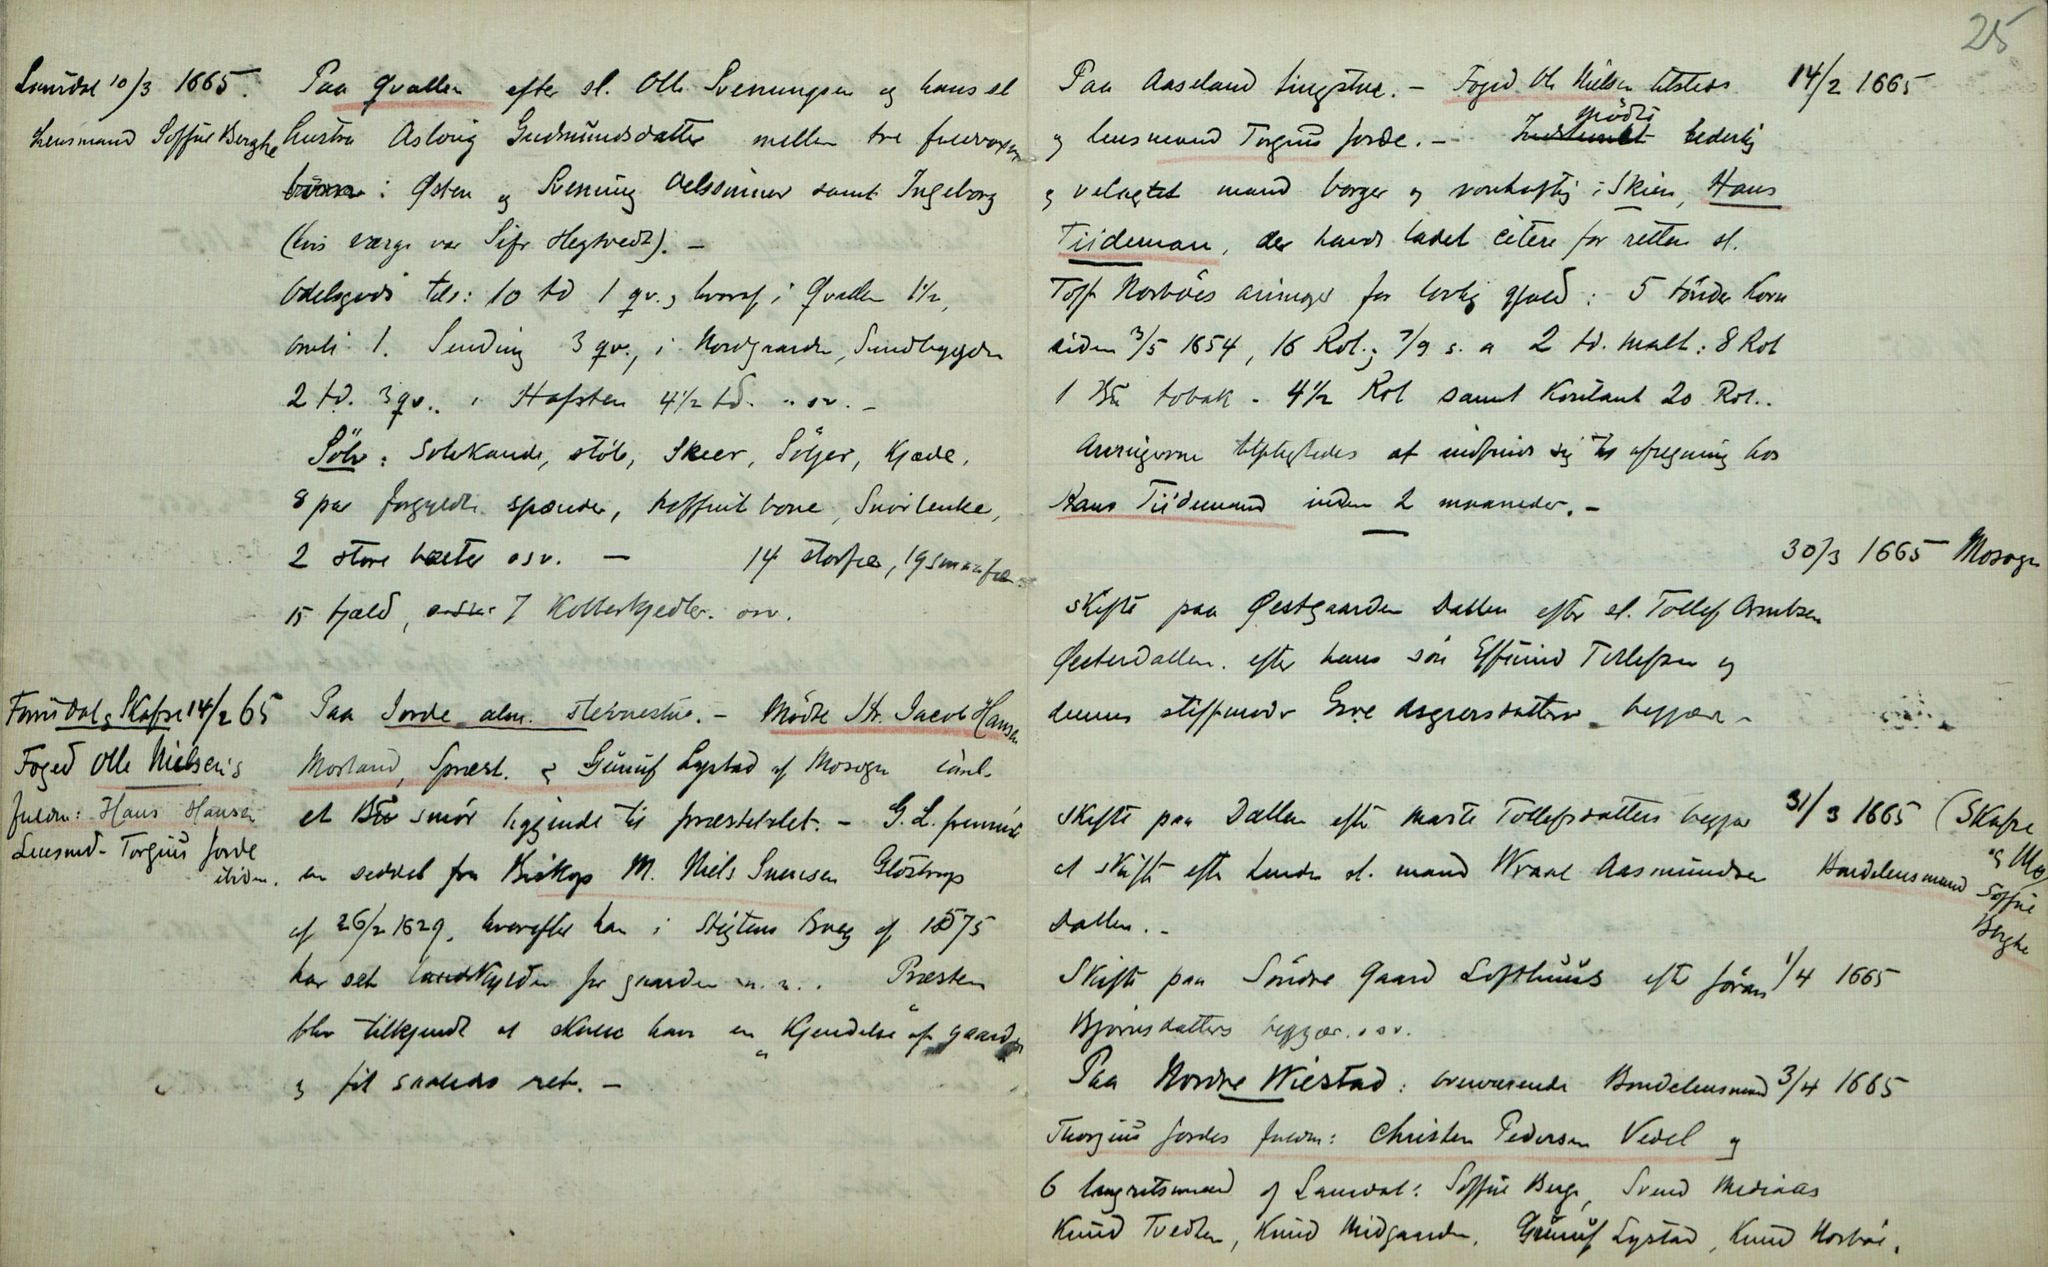 Laurdal 10/3 1665.
Lensmand Soffue Berghe
Paa Qvallen efter sl. Olle Svenungsen og hans sl
hustru Aslovig Gudmundsdatter mellem tre
börn: Østen og Svening Oelssönner samt Ingeborg
(hvis værge var Sifr Hegtvedt). –
Odelsgods tils: 10 td 1 qv., hvoraf i Qvallen 1½,
1. Sending 3 qv., i Nordgaarden, Sundbygden
2 td. 3 qv., i Hafsten 4½ td. osv. –
Sölv: Sölvkande, stöb, Skeer, Söljer, Kjæde,
8 par forgyldte spænder, Snörlenke,
2 store belter osv. – 14 storfæ, 19 smaafæ
15 fjæld, 7 Kobberkjedler. osv.
Foged Olle Nielsens
fuldm: Hans Hansen
Lensmd. Torgius Jorde
ibidem.
Paa Jorde alm. stevnestue. – Mödte Hr. Jacob Hansen
Morland, Spræst. og Gunuf Lystad af Mosogn
et Bö smör liggende til præstebolet. – G. L. fremviste
en seddel fra Biskop M. Niels Svensen Glostrup
af 26/2 1629, hvorefter han i Stigtens Bog af 1575
har set landskylden for gaarden m. m. Præsten
blev tilkjendt at skulle have en "Kjendelse" af gaarden
og fik saaledes ret. –
25
Paa Aaseland tingstue. – Foged Ole Nielsen tilsteds 14/2 1665
og lensmand Torgius Jorde. – mödte hederlig
og velagtet mand borger og vonhaftig i Skien, Hans
Tiideman, der havde ladet citere for retten sl.
Toff Norböes arvinger for lovlig gjæld: 5 tönder korn
siden 3/5 1654, 16 Rdl. og 7/9 s. a 2 td. malt: 8 Rdl
1 tobak – 4½ Rdl samt kontant 20 Rdl..
Arvingerne tilpligtedes at indfinde sig til afregning hos
Hans Tiidemand inden 2 maaneder. –
30/3 1665 Mosogn
Skifte paa Østgaarden Dallen efter sl. Tollef Arnbsen
Østerdallen. efter hans sön Effuind Tollefsen og
dennes stiffmoder Groe Asgrersdatters begjær –
Skifte paa Dallen efter Marte Tollefsdatters begjær 31/3 1665 (Skafse
og Mo)
at skifte efter hendes sl. mand Wraal Aasmundsen Bondelensmand Soffue
Berghe
Dallen. –
Skifte paa Söndre Gaard Lofthuus efter Jöran 1/4 1665
Björnsdatters begjær. osv.
Paa Nordre Wiestad: overværende Bondelensmand 3/4 1665
Thorgius Jordes fuldm: Christen Pedersen Vedel og
6 laugretsmænd af Laurdal: Soffue Berge, Svend Mediaas
Knud Tvedten, Knud Midgaarden, Gunuf Lystad, Knud Norböe.